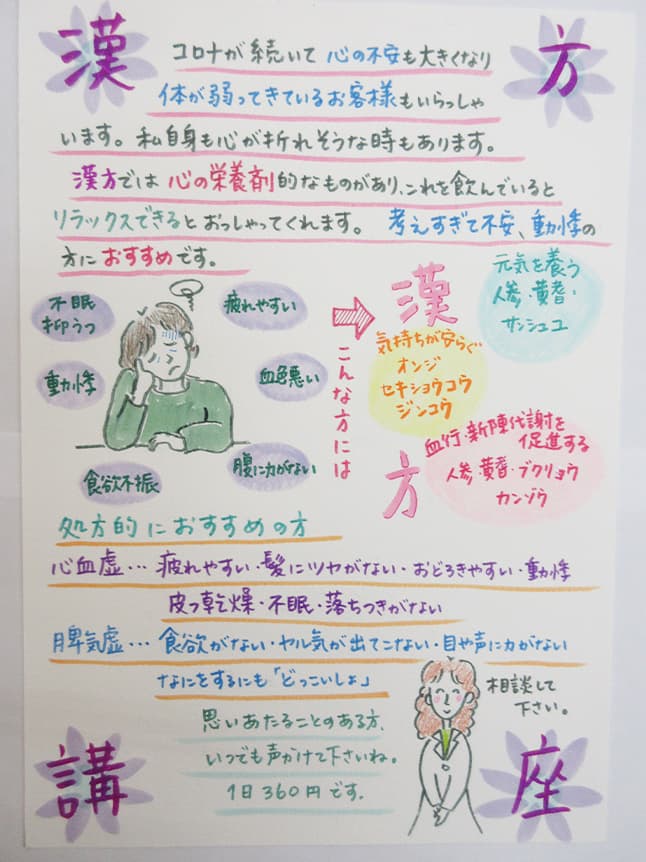 漢方
コロナが続いて心の不安も大きくなり
体が弱ってきているお客様もいらっしゃ
います。私自身も心が折れそうな時もあります。
漢方では心の栄養剤的なものがあり、これを飲んでいると
リラックスできるとおっしゃってくれます。 考えすぎて不安、動悸の
方におすすめです。
不眠
抑うつ
疲れやすい
動悸
血色悪い
食欲不振
腹に力がない
こんな方には
漢
方
元気を養う
人参・黄耆・
サンシュユ
気持ちが安らぐ
オンジ
セキショウコウ
ジンコウ
血行・新陳代謝を
促進する
人参・黄耆・ブクリョウ
カンゾウ
処方的におすすめの方
心血虚… 疲れやすい・髪にツヤがない・おどろきやすい・動悸
皮フ乾燥・不眠・落ちつきがない
脾気虚… 食欲がない・ヤル気が出てこない・目や声に力がない
なにをするにも「どっこいしょ」
相談して
下さい。
思いあたることのある方、
いつでも声かけて下さいね。
1日360円です.
講座